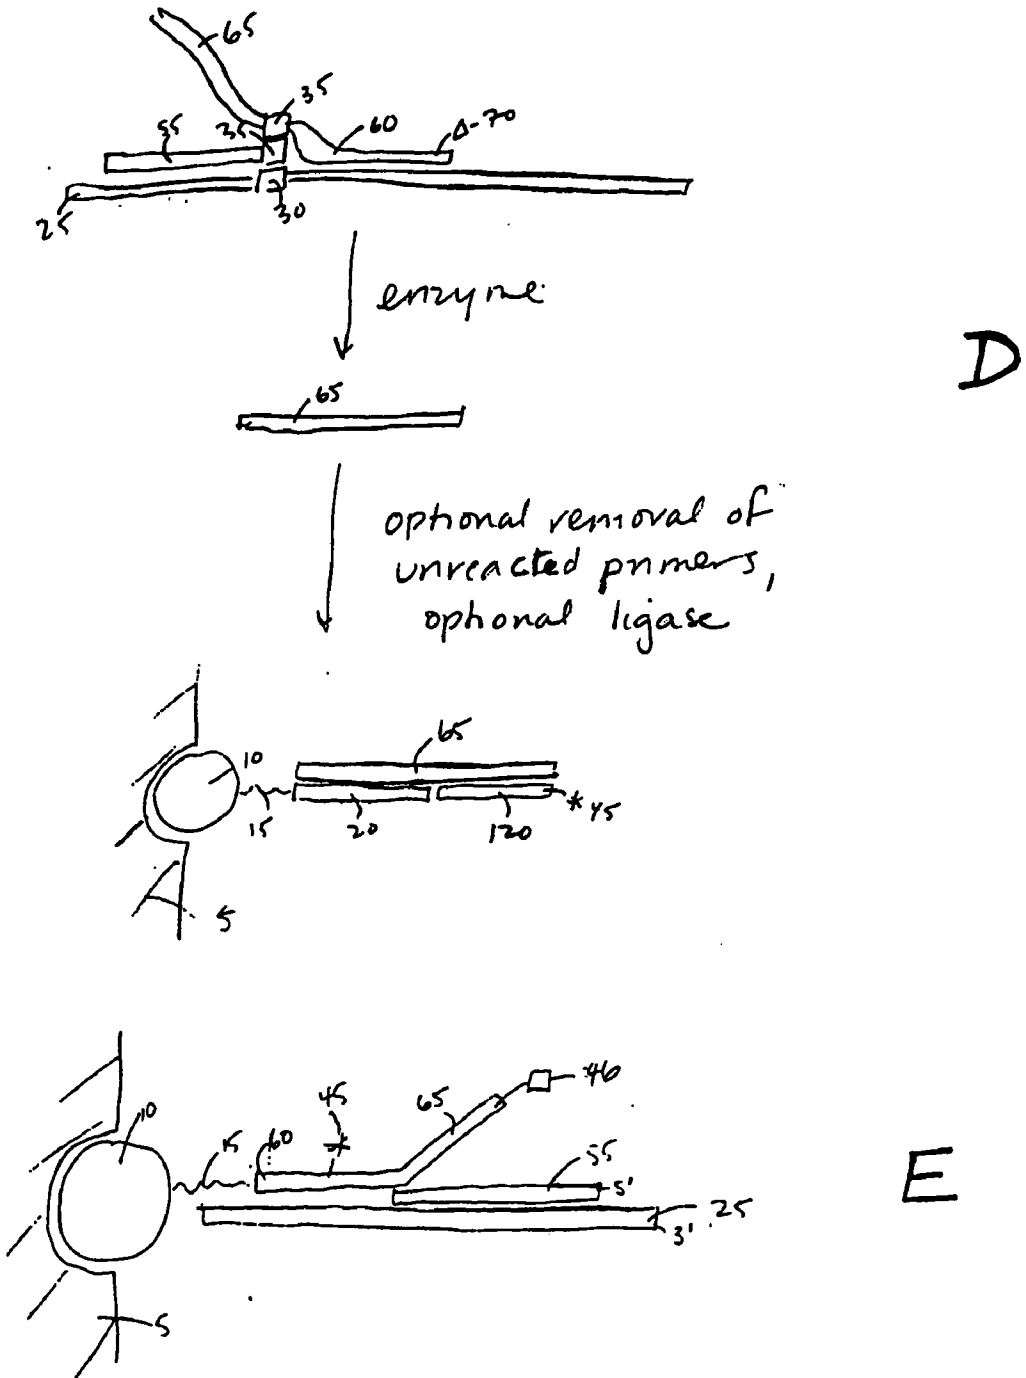 65
35
55
35
60
Δ-70
25
30
enzyme
D
65
optional removal of
unreacted primers,
optional ligase
65
10
15
20
120
* 45
5
46
45
65
10
15
60
55
5'
E
25
3'
5